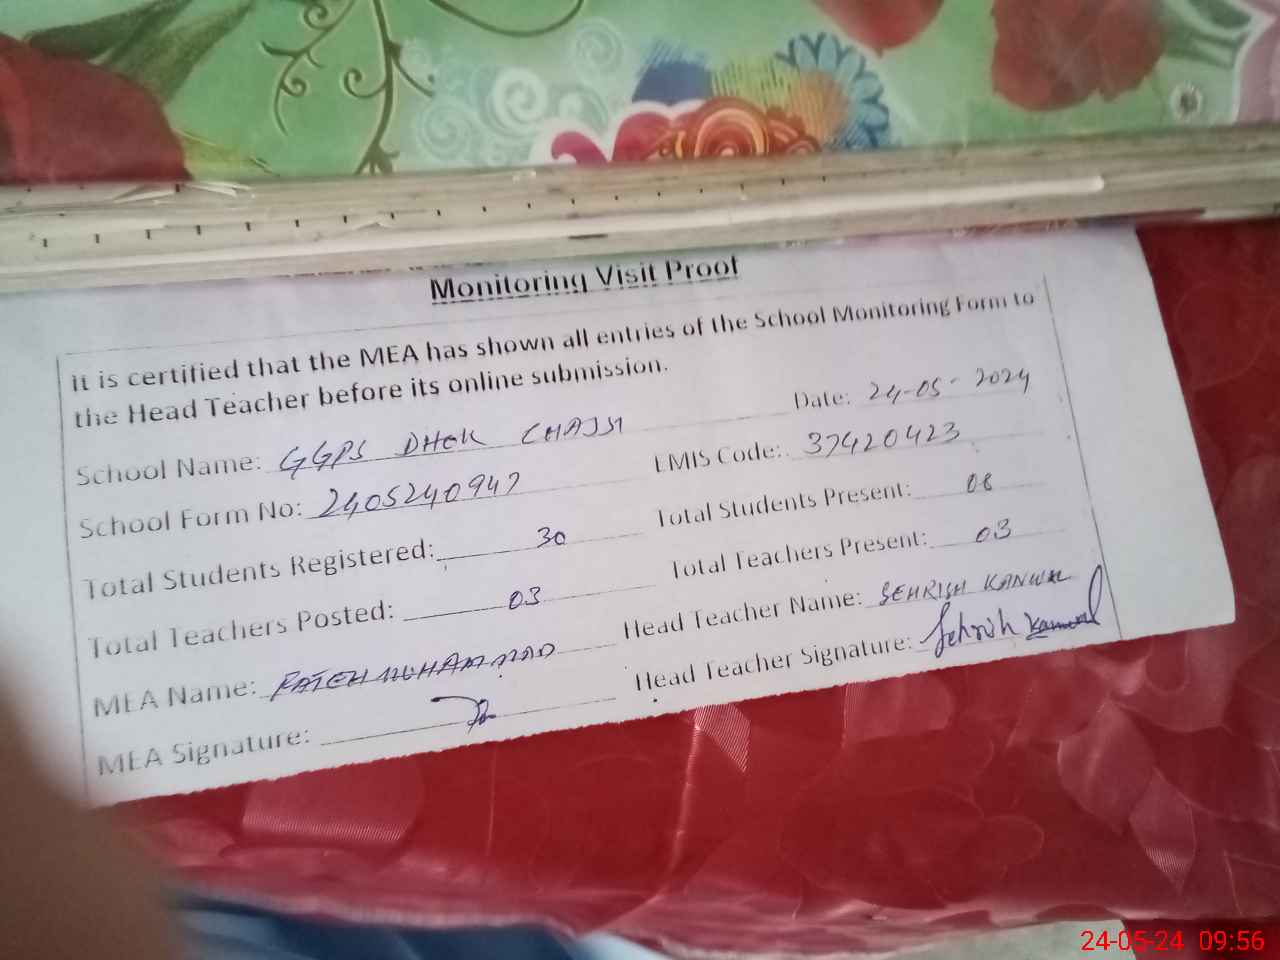 Monitoring Visit Proof
It is certified that the MEA has shown all entries of the School Monitoring Form to
the Head Teacher before its online submission.
Date: 24-05-2024
School Name: GGPS DHOK CHAJJI
EMIS Code: 37420423
School Form No: 2405240947
Total Students Present: 08
Total Students Registered: 30
Total Teachers Present: 03
Total Teachers Posted: 03
Head Teacher Name: SEHRISH KANWAL
MEA Name: FATEH MUHAMMAD
Head Teacher Signature: Sehrish Kanwal
MEA Signature:
24-05-24 09:56